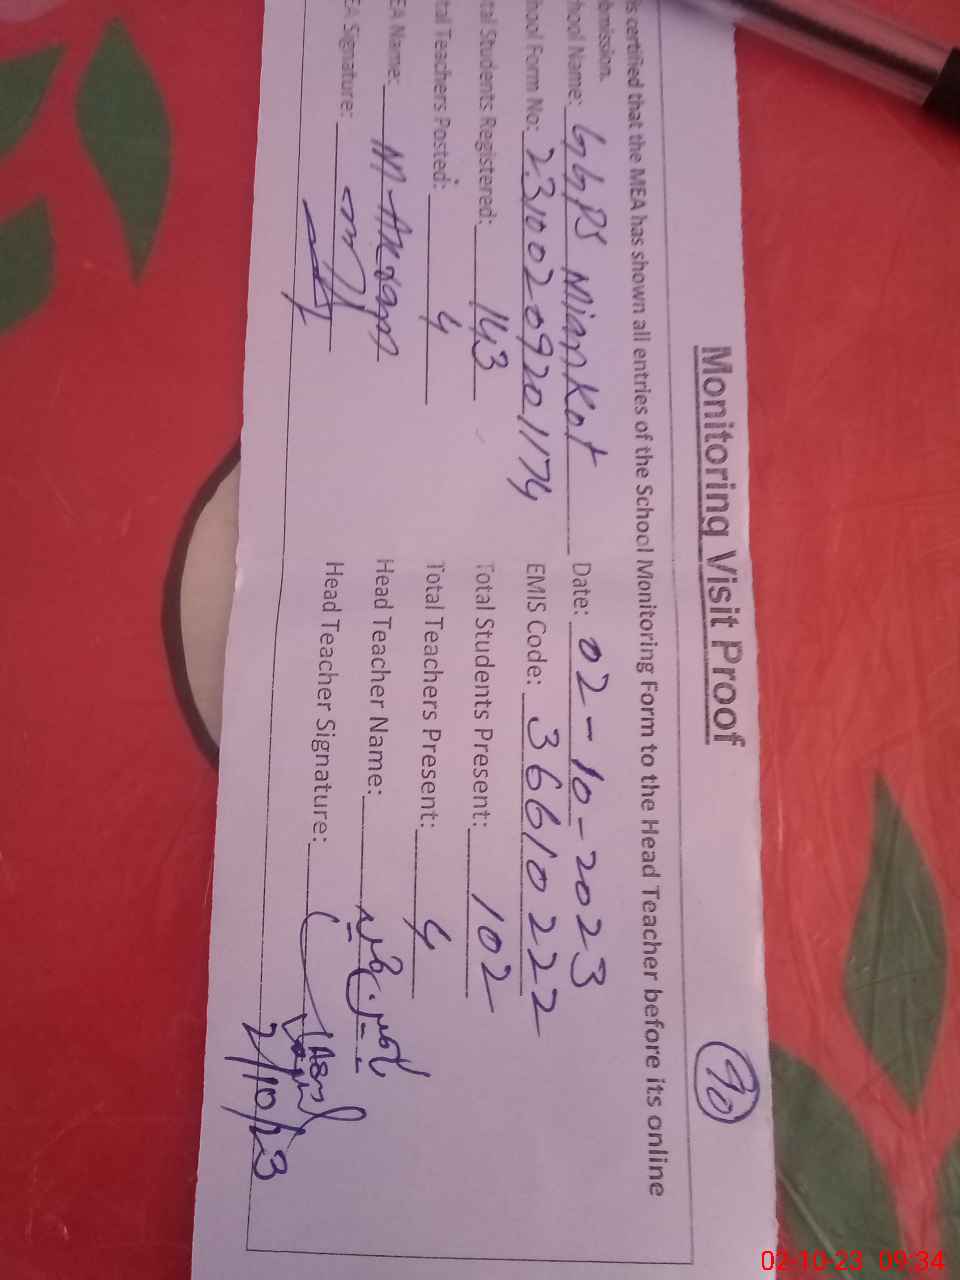 Monitoring Visit Proof
90
is certified that the MEA has shown all entries of the School Monitoring Form to the Head Teacher before its online
bmission.
hool Name: GGPS Miankot Date: 02-10-2023
hool Form No: 2310020920 1174 EMIS Code: 36610222
tal Students Registered: 143 Total Students Present: 102
tal Teachers Posted: 4 Total Teachers Present: 4
EA Name: M- Head Teacher Name:
EA Signature: Head Teacher Signature:
2/10/23
02-10-23 09:34